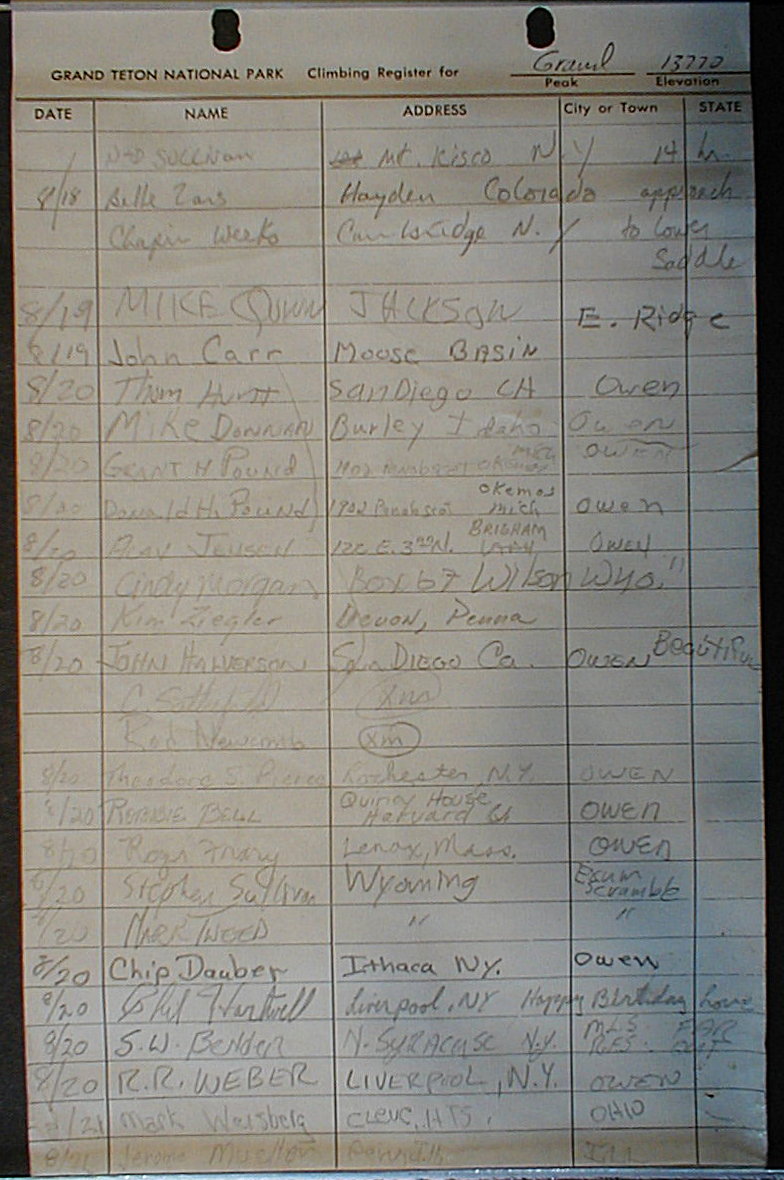 Grand 13770
GRAND TETON NATIONAL PARK Climbing Register for Peak Elevation
DATE NAME ADDRESS City or Town STATE
Sullivan Mt. Kisco N.Y 14 hr.
8/18 Hayden Colorado approach
Chapin Weeks Cambridge N.Y to Lower
Saddle
8/19 MIKE QUINN JACKSON E. Ridge
8/19 John Carr Moose BASIN
8/20 Thom San Diego CA Owen
8/20 Mike DONNAN Burley Idaho Owen
8/20 GRANT H POUND 1902 OWEN
Okemos
8/20 Donald H. POUND 1902 Penobscot mich Owen
BRIGHAM
8/20 JENSEN E. 3rd N. OWEN
8/20 Cindy Morgan Box 67 Wilson Wyo. "
8/20 Kim Ziegler Devon, Penna
8/20 JOHN HALVERSON San DIEGO Ca. OWEN Beautiful
C. (xm)
Rod Newcomb (xm)
8/20 Theodore S. Pierce Rochester, N.Y. OWEN
Quincy House
8/20 ROBBIE BELL Harvard U OWEN
8/20 Roger Lenox, Mass. OWEN
8/20 Stephen Sullivan Wyoming Exum
Scramble
8/20 MARK " "
8/20 Chip Dauber Ithaca NY. Owen
8/20 Phil Hartwell Liverpool, NY Happy Birthday Love
8/20 S.W. BENDER N. SYRACUSE N.Y. FAR
OUT
8/20 R.R. WEBER LIVERPOOL, N.Y. OWEN
8/21 Mark Weisberg CLEVE. HTS. OHIO
8/21 Jerome Ill